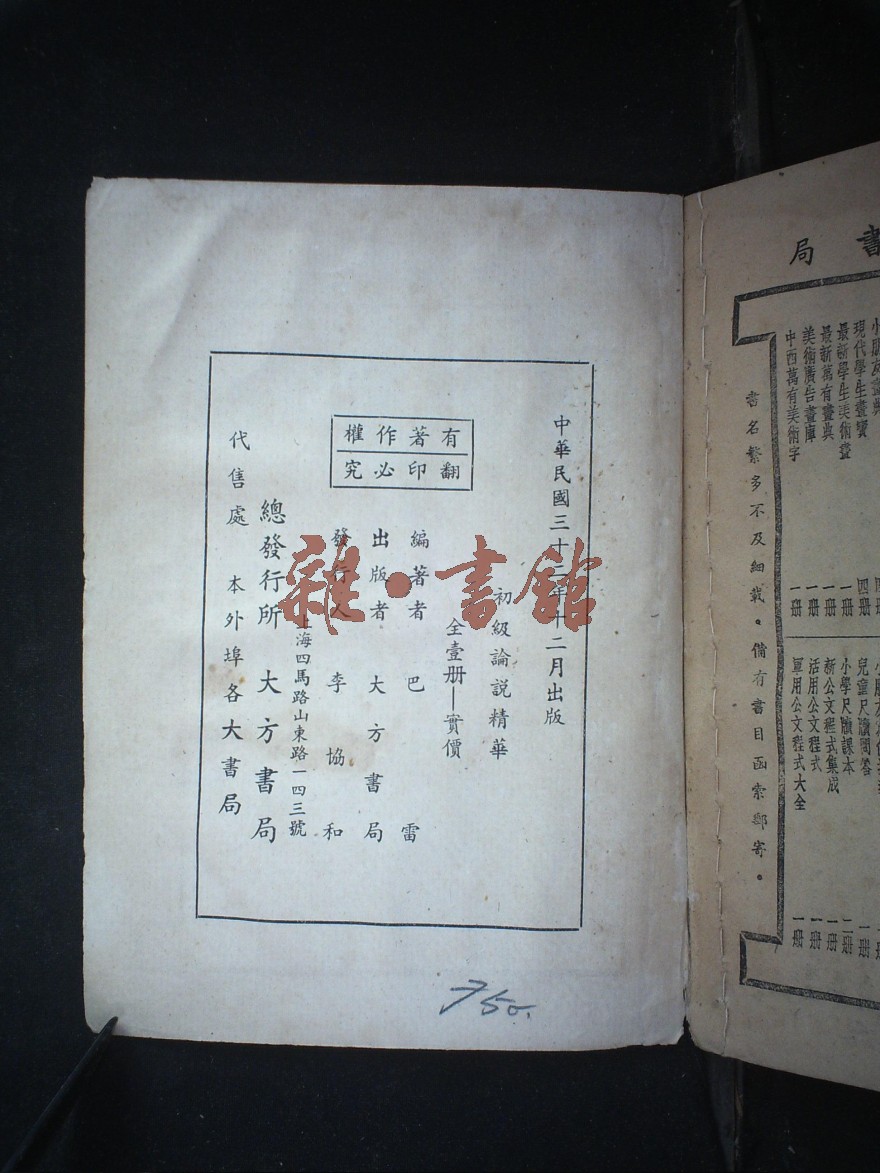 書局
現代學生畫寶 四册
最新學生美術畫 一册
最新萬有畫典 一册
美術廣告畫庫 一册
中西萬有美術字 一册
兒童尺牘問答 一册
小學尺牘課本 二册
新公文程式集成 一册
活用公文程式 一册
軍用公文程式大全 一册
書名繁多不及細載。備有書目函索郵寄。
中華民國三十二年十二月出版
初級論説精華
全壹册—實價
有著作權
翻印必究
編著者 巴雷
出版者 大方書局
發行人 李協和
上海四馬路山東路一四三號
總發行所 大方書局
代售處 本外埠各大書局
雜·書館
750.